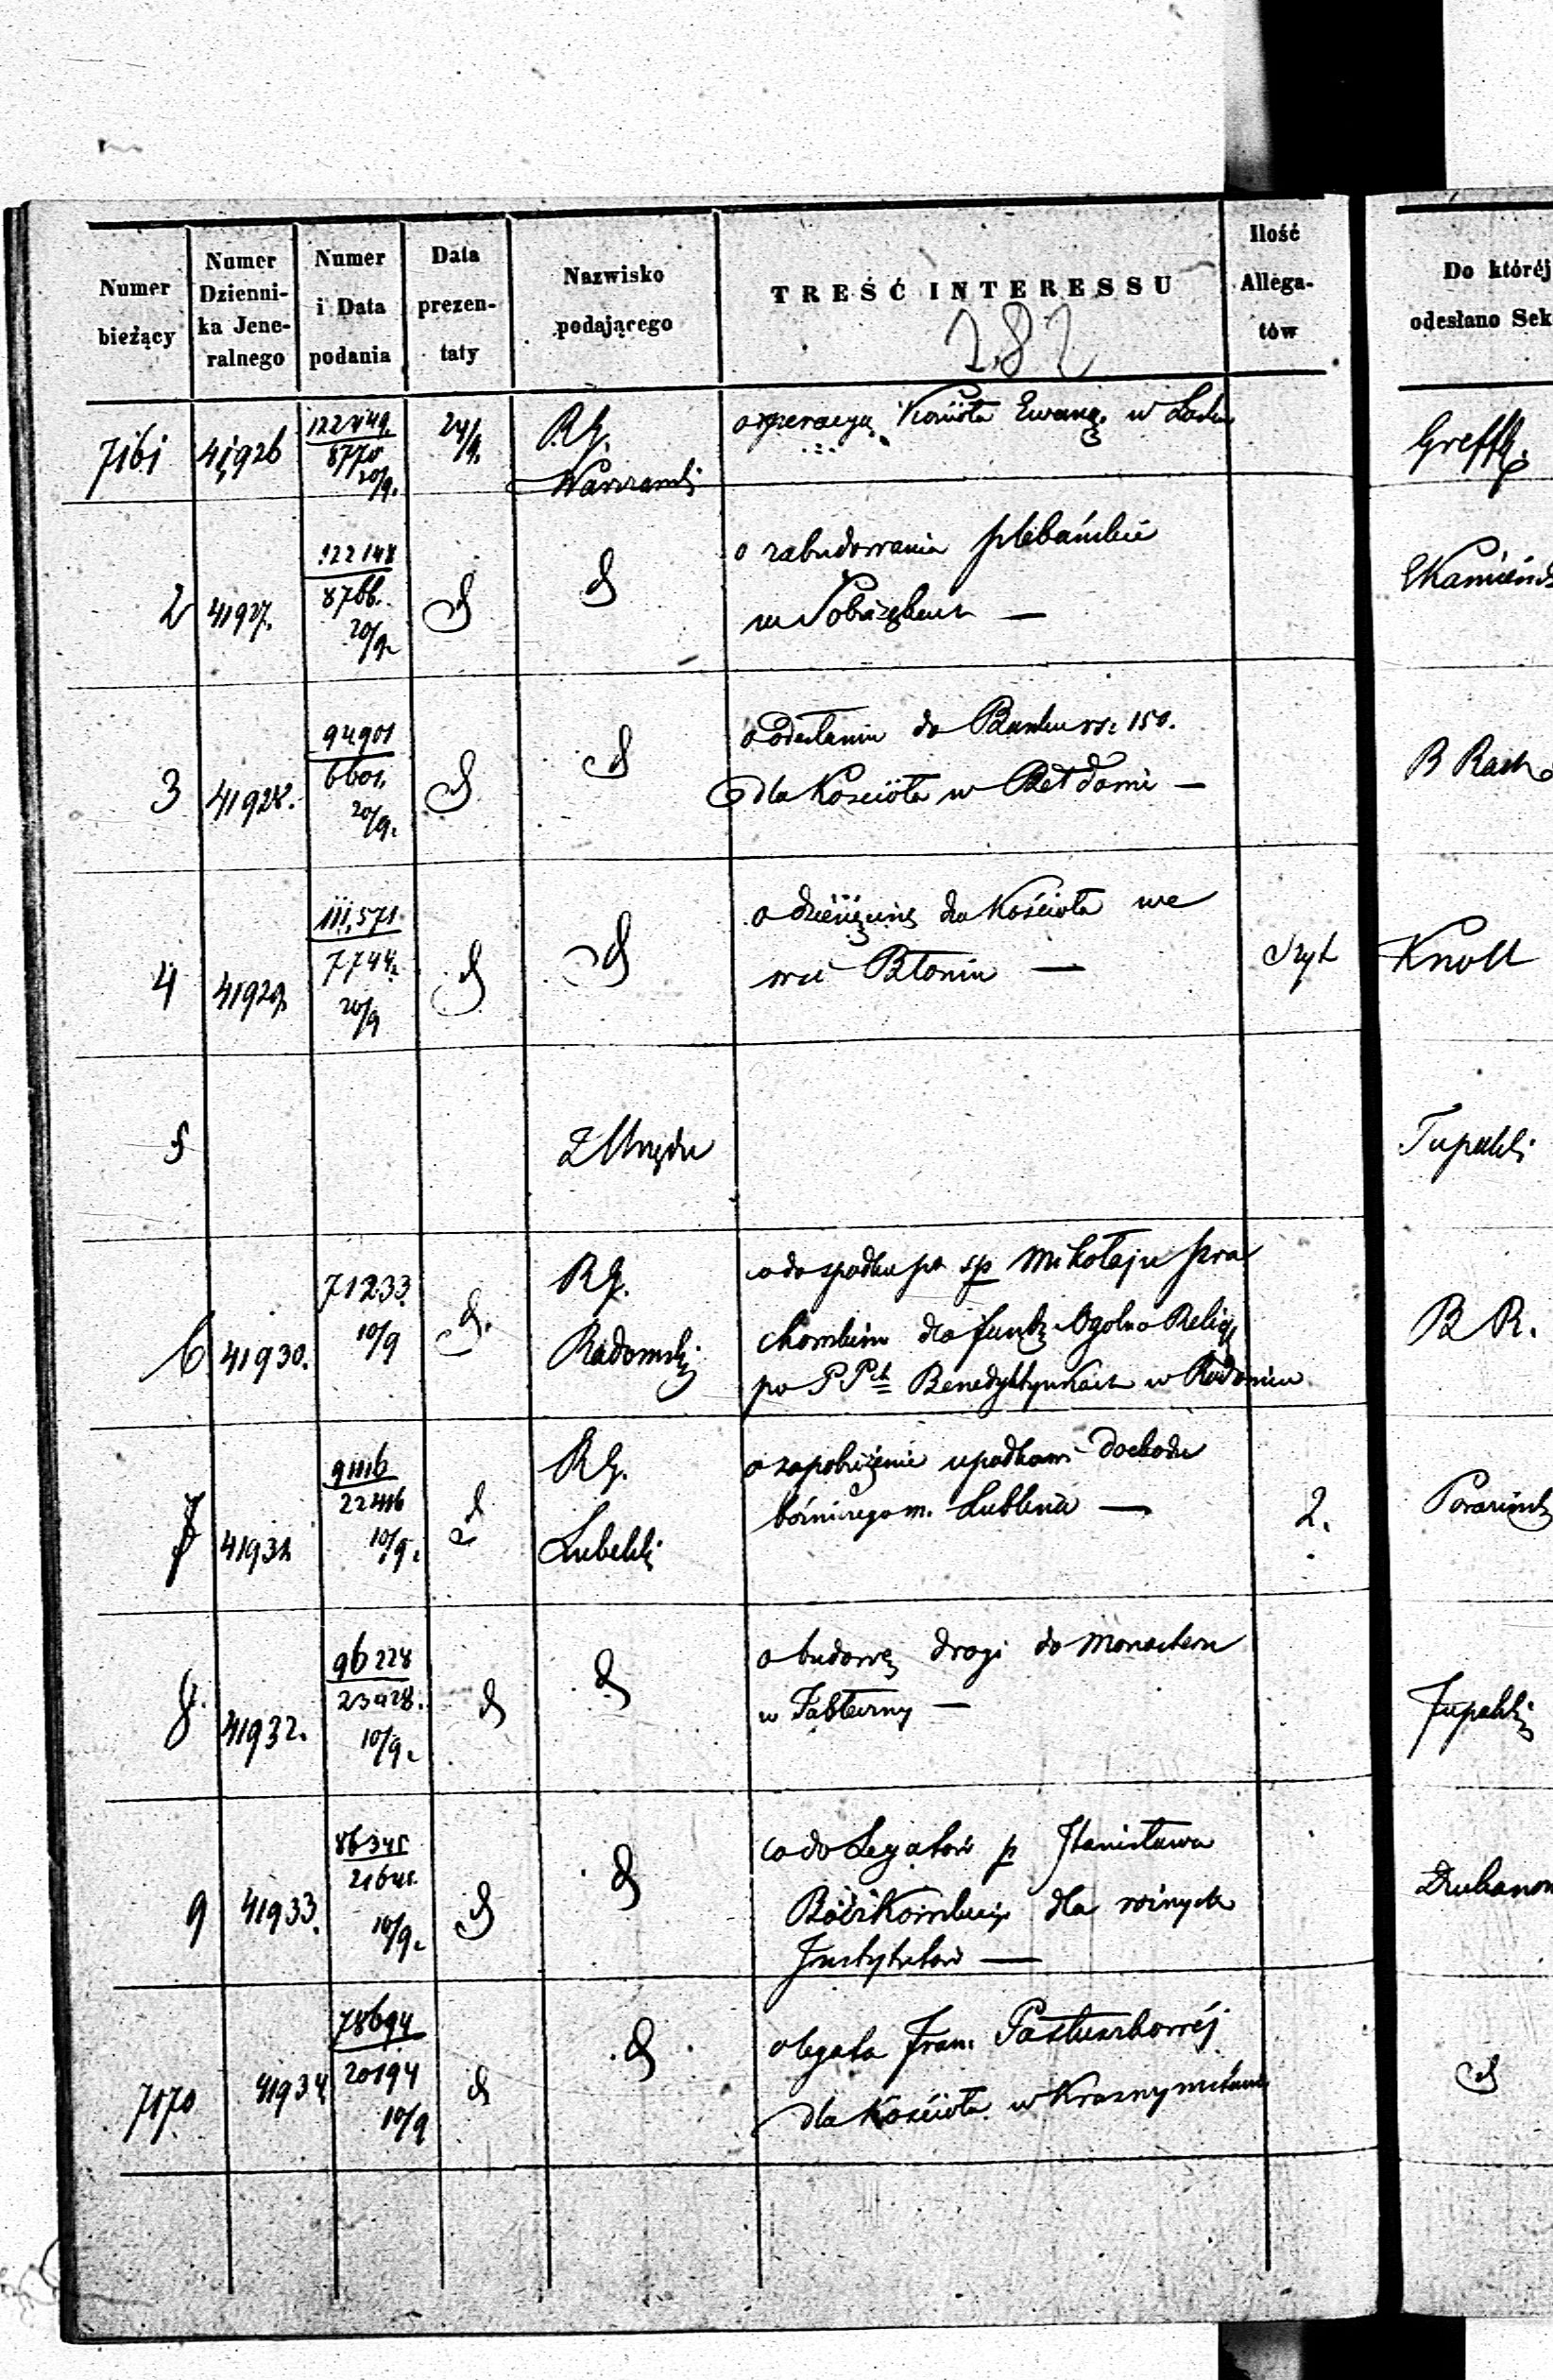 Numer bieżący | Numer Dziennika Jeneralnego | Numer i Data podania | Data prezentaty | Nazwisko podającego | TREŚĆ INTERESSU | Ilość Allegatów | Do któréj odesłano Sek
282
7161 | 41926 | 122449 / 8770 20/9. | 24/9. | R.G. Warszawski | o reperacyą Kościoła Ewang. w | | Greff
2 | 41927. | 122148 / 8766. 20/9 | d | d | o zabudowania plebańskie
w
3 | 41928. | 94901 / 6601. 20/9. | d | d | o odesłaniu do Banku rs. 150.
dla Kościoła w Bełdowie — | | B Rach
4 | 41929. | 111,571 / 7744. 20/9 | d | d | o dziesięcinę dla Kościoła we
wsi Błoniu — | Szyt | Knoll
5 | | | | Z Urzędu | | | Tupalski
6 | 41930. | 71233. 10/9 | d. | R.G. Radomski | co do spadku po śp Mikołaju
dla fundz Ogólno Relig
po PPch Benedyktynkach w Radomiu | | B R.
7 | 41931 | 91116 / 22416 10/9. | d | R.G. Lubelski | o zapobieżenie upadkowi dochodu
bóżniczego m. Lublina — | 2.
8. | 41932. | 96228 / 23428. 10/9. | d | d | o budowę drogi do Monasteru
w Jabłeczny — | | Tupalski
9 | 41933. | 86345 / 21641. 10/9. | d | d | co do Legatów p Stanisława
dla różnych
Instytutów —
7170 | 41934 | 78694 / 20194 10/9 | d | d | o legata Fran. Pastuszkowéj
dla Kościoła w Krasnymstawie | | d